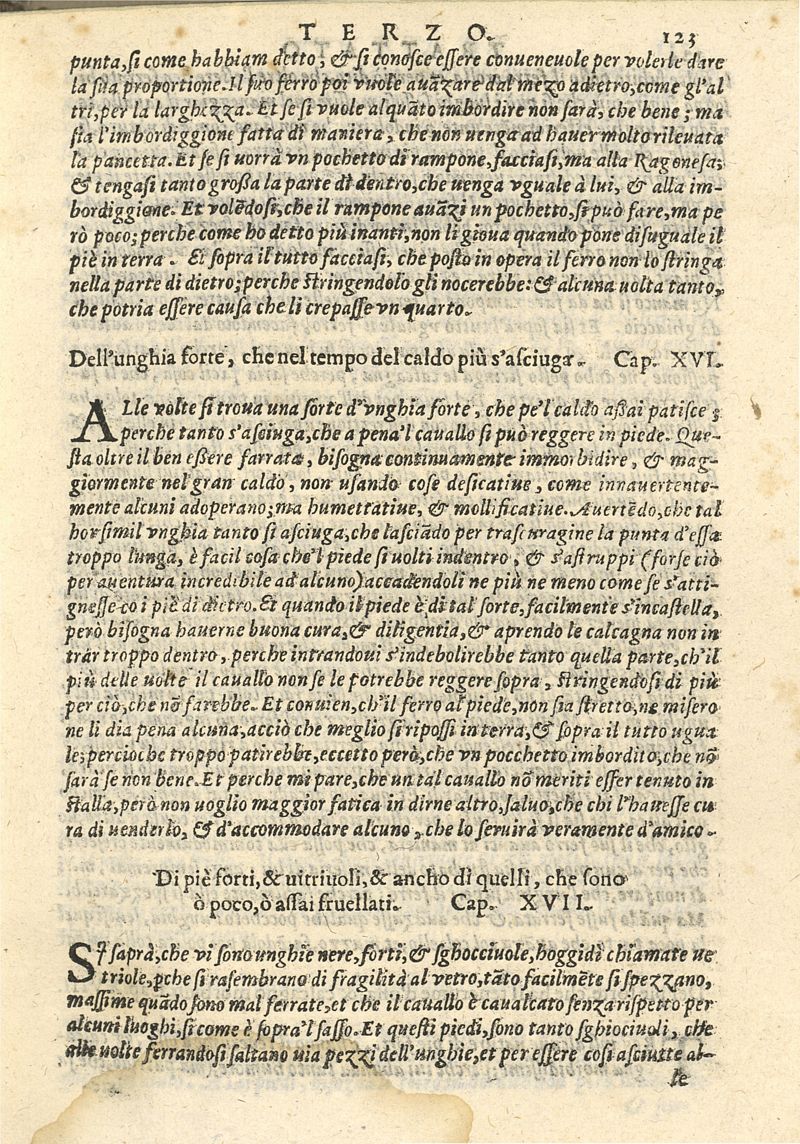 TERZO. 123
punta, si come habbiam detto, & si conosce essere conueneuole per volerle dare
la sua proportione. Il suo ferro poi vuole auãzare dal mezo adietro, come gl'al
tri, per la larghezza. Et se si vuole alquãto imbordire non sarà, che bene; ma
sia l'imbordiggione fatta di maniera, che non uenga ad hauer molto rileuata
la pancetta. Et se si uorrà vn pochetto di rampone, facciasi, ma alla Ragonesa;
& tengasi tanto großa la parte di dentro, che uenga vguale à lui, & alla im-
bordiggione. Et volẽdosi, che il rampone auãzi un pochetto, si può fare, ma pe
rò poco; perche come ho detto più inanti, non li gioua quando pone disuguale il
piè in terra. Et sopra il tutto facciasi, che posto in opera il ferro non lo stringa
nella parte di dietro; perche stringendolo gli nocerebbe: & alcuna uolta tanto,
che potria essere causa che li crepasse vn quarto.
Dell'unghia forte, che nel tempo del caldo più s'asciuga. Cap. XVI.
ALle volte si troua una sorte d'vnghia forte, che pe'l caldo aßai patisce;
perche tanto s'asciuga, che a pena'l cauallo si può reggere in piede. Que-
sta oltre il ben eßere farrata, bisogna continuamente immorbidire, & mag-
giormente nel gran caldo, non usando cose desicatiue, come innauertente-
mente alcuni adoperano; ma humettatiue, & mollificatiue. Auertẽdo, che tal
hor simil vnghia tanto si asciuga, che lasciãdo per trascuragine la punta d'essa
troppo lunga, è facil cosa che'l piede si uolti indentro, & s'astruppi (forse ciò
per auentura incredibile ad alcuno) accadendoli ne più ne meno come se s'atti-
gnesse co i piè di dietro. Et quando il piede è di tal sorte, facilmente s'incastella,
però bisogna hauerne buona cura, & diligentia, & aprendo le calcagna non in
trar troppo dentro, perche intrandoui s'indebolirebbe tanto quella parte, ch'il
più delle uolte il cauallo non se le potrebbe reggere sopra, stringendosi di più
per ciò, che nõ farebbe. Et conuien, ch'il ferro al piede, non sia stretto, ne misero
ne li dia pena alcuna, acciò che meglio si ripossi in terra, & sopra il tutto ugua
le; percioche troppo patirebbe, eccetto però, che vn pocchetto imbordito, che nõ
sarà se non bene. Et perche mi pare, che un tal cauallo nõ meriti esser tenuto in
stalla, però non uoglio maggior fatica in dirne altro, saluo, che chi l'hauesse cu
ra di uenderlo, & d'accommodare alcuno, che lo seruirà veramente d'amico.
Di piè forti, & uitriuoli, & ancho di quelli, che sono
ò poco, ò assai fruellati. Cap. XVII.
SI saprà, che vi sono unghie nere, forti, & sghocciuole, hoggidì chiamate ue
triole, ꝑche si rasembrano di fragilità al vetro, tãto facilmẽte si spezzano,
massime quãdo sono mal ferrate, et che il cauallo è caualcato senza rispetto per
alcuni luoghi, si come è sopra'l sasso. Et questi piedi, sono tanto sghiociuoli, che
alle uolte ferrandosi saltano uia pezzi dell'unghie, et per essere così asciutte al-
le